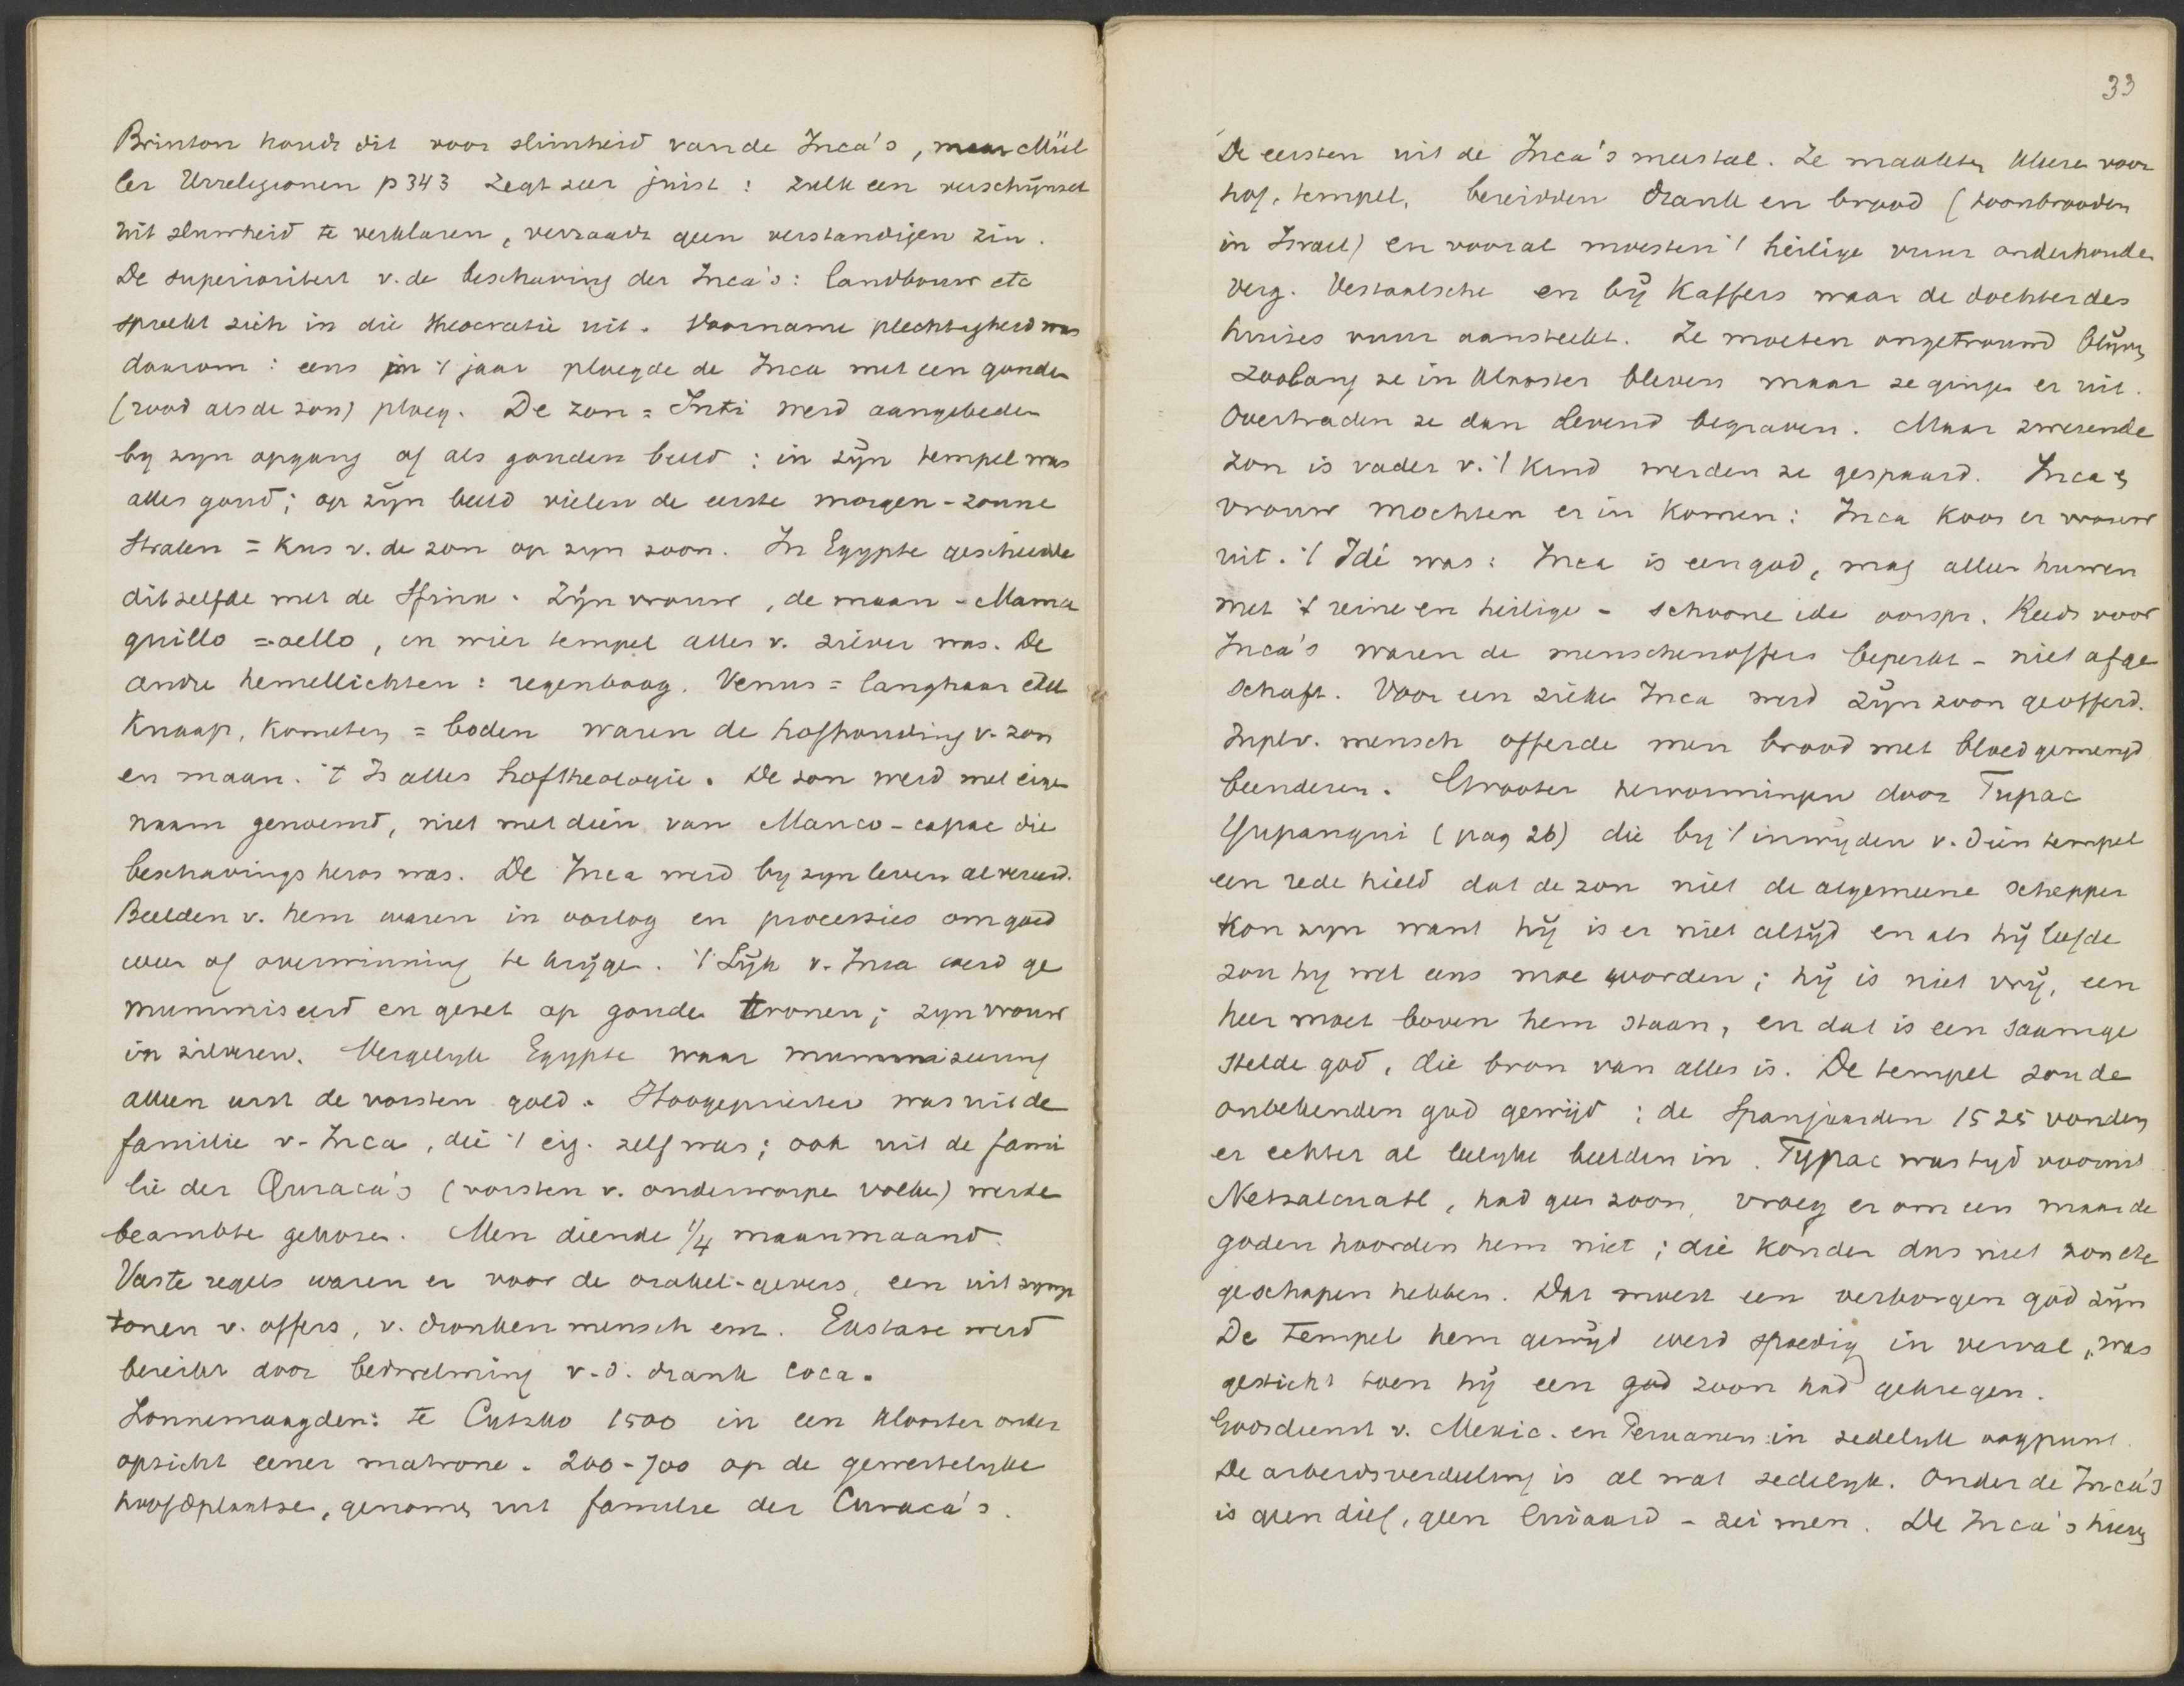 Brinton houdt dit voor slimheid van de Inca's, maar Mül
ler Urreligionen p 343 zegt zeer juist: zulk een verschijnsel
uit slimheid te verklaren, verraadt geen verstandigen zin.
De superioriteit v. de beschaving der Inca's: landbouw etc
spreekt zich in die theocratie uit. Voorname plechtigheid was
daarom: eens in 't jaar ploegde de Inca met een gouden
(rood als de zon) ploeg. De zon = Inti werd aangebeden
by zyn opgang of als gouden beeld: in zijn tempel was
alles goud; op zijn beeld vielen de eerste morgen-zonne
stralen = kus v. de zon op zyn zoon. In Egypte geschiedde
ditzelfde met de Sfinx. Zijn vrouw, de maan - Mama
quillo = oello, in wier tempel alles v. zilver was. De
andre hemellichten: regenboog, Venus = langhaar edel
knaap, kometen = boden waren de hofhouding v. zon
en maan. 't Is alles hoftheologie. De zon werd met eigen
naam genoemd, niet met dien van Manco-capac die
beschavings heros was. De Inca werd by zyn leven al vereerd.
Beelden v. hem waren in oorlog en processies om goed
weer of overwinning te krijgen. 't Lijk v. Inca werd ge
mummiseerd en gezet op gouden tronen; zyn vrouw
in zilveren. Vergelyk Egypte waar mummiseering
alleen eerst de vorsten gold. Hoogepriester was uit de
familie v. Inca, die 't eig. zelf was; ook uit de fami
lie der Curaca's (vorsten v. onderworpen volken) werden
beambte gekozen. Men diende 1/4 maanmaand.
Vaste regels waren er voor de orakel-gevers, een uit symp
tonen v. offers, v. dronken mensch enz. Exstase werd
bereikt door bedwelming v. d. drank coca.
Zonnemaagden: te Cutzko 1500 in een klooster onder
opzicht eener matrone. 200-700 op de gewestelyke
hoofdplaatsen, genomen uit familie der Curaca's.
33
De eersten uit de Inca's meestal. Ze maakten kleren voor
hof, tempel, bereidden drank en brood (toonbrooden
in Israel) en vooral moesten 't heilige vuur onderhouden
verg. Vestaalsche en bij Kaffers waar de dochter des
huizes vuur aansteekt. Ze moeten ongetrouwd blijven
zoolang ze in klooster bleven maar ze gingen er uit.
Overtraden ze dan levend begraven. Maar zwerende
zon is vader v. 't kind werden ze gespaard. Inca en
vrouw mochten er in komen: Inca koos er vrouw
uit. 't Idé was: Inca is een god, mag alleen huwen
met 't reine en heilige - schoone ide oorspr. Reeds voor
Inca's waren de menschenoffers beperkt - niet afge
schaft. Voor een zieke Inca werd zijn zoon geofferd.
In pl. v. mensch offerde men brood met bloed gemengd
beenderen. Grooter hervormingen door Tupac
Yupanqui (pag 26) die by 't inwijden v. dien tempel
een rede hield dat de zon niet de algemeene schepper
kon zyn want hij is er niet altijd en als hij leefde
zou hy wel eens moe worden; hij is niet vrij, een
heer moet boven hem staan, en dat is een saamge
stelde god, die bron van alles is. De tempel zou de
onbekenden god gewijd: de Spanjaarden 1525 vonden
er echter al leelyke beelden in. Typac was tyd vooruit
Netzalcuatl, had geen zoon, vroeg er om een maar de
goden hoorden hem niet; die konden dus niet zon etc
geschapen hebben. Dat moest een verborgen god zijn
De tempel hem gewijd werd spoedig in verval, was
gesticht toen hij een god zoon had gekregen.
Godsdienst v. Mexic. en Peruanen in zedelyk oogpunt.
De arbeidsverdeeling is al wat zedelyk. Onder de Inca's
is geen dief, geen luiaard - zei men. De Inca's hieven